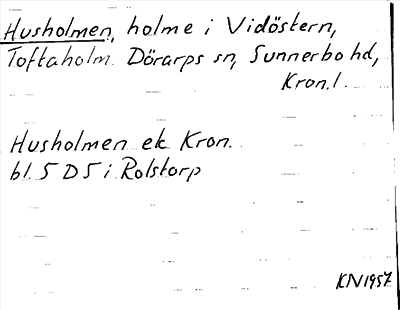 Husholmen, holme i Vidöstern,
Toftaholm. Dörarps sn, Sunnerbo hd,
Kron. l.
Husholmen ek Kron.
bl. 5 D 5 i Rolstorp
KN 1957